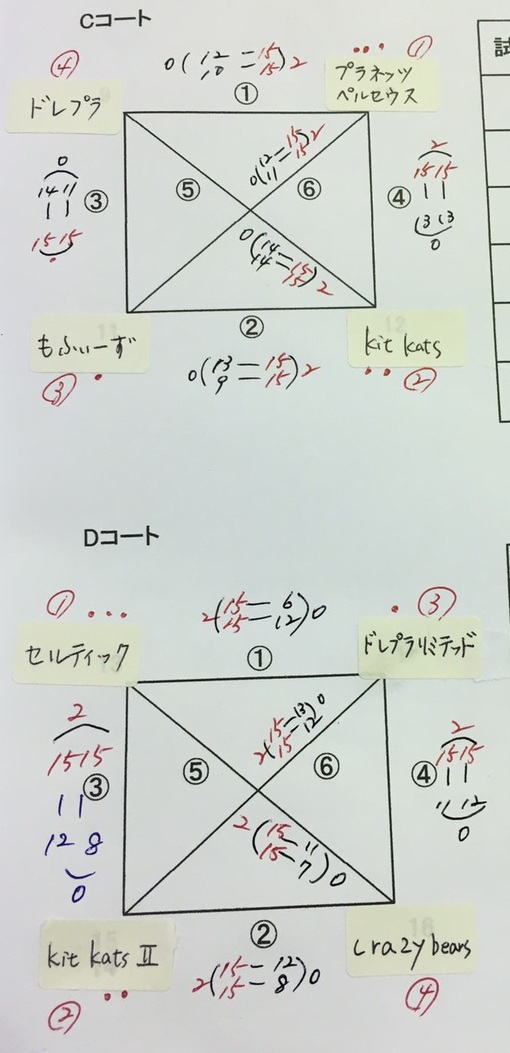 Cコート
④ 0(12=15 10=15)2 ••• ①
試
ドレプラ ① プラネッツ
ペルセウス
0 0(12=15 11=15)2 2
14 11 ③ ⑤ ⑥ ④ 15 15
15 15 13 13
0(14=15 14=15)2 0
もふぃーず ② kit kats
③ • 0(13=15 9=15)2 •• ②
Dコート
① ••• 2(15-6 15-12)0 • ③
セルティック ① ドレプラリミテッド
2 2(15-13 15-12)0 2
15 15 ③ ⑤ ⑥ ④ 15 15
12 8 11 12
0 2(15-11 15-7)0 0
kit kats II ② crazy bears
② •• 2(15-12 15-8)0 ④